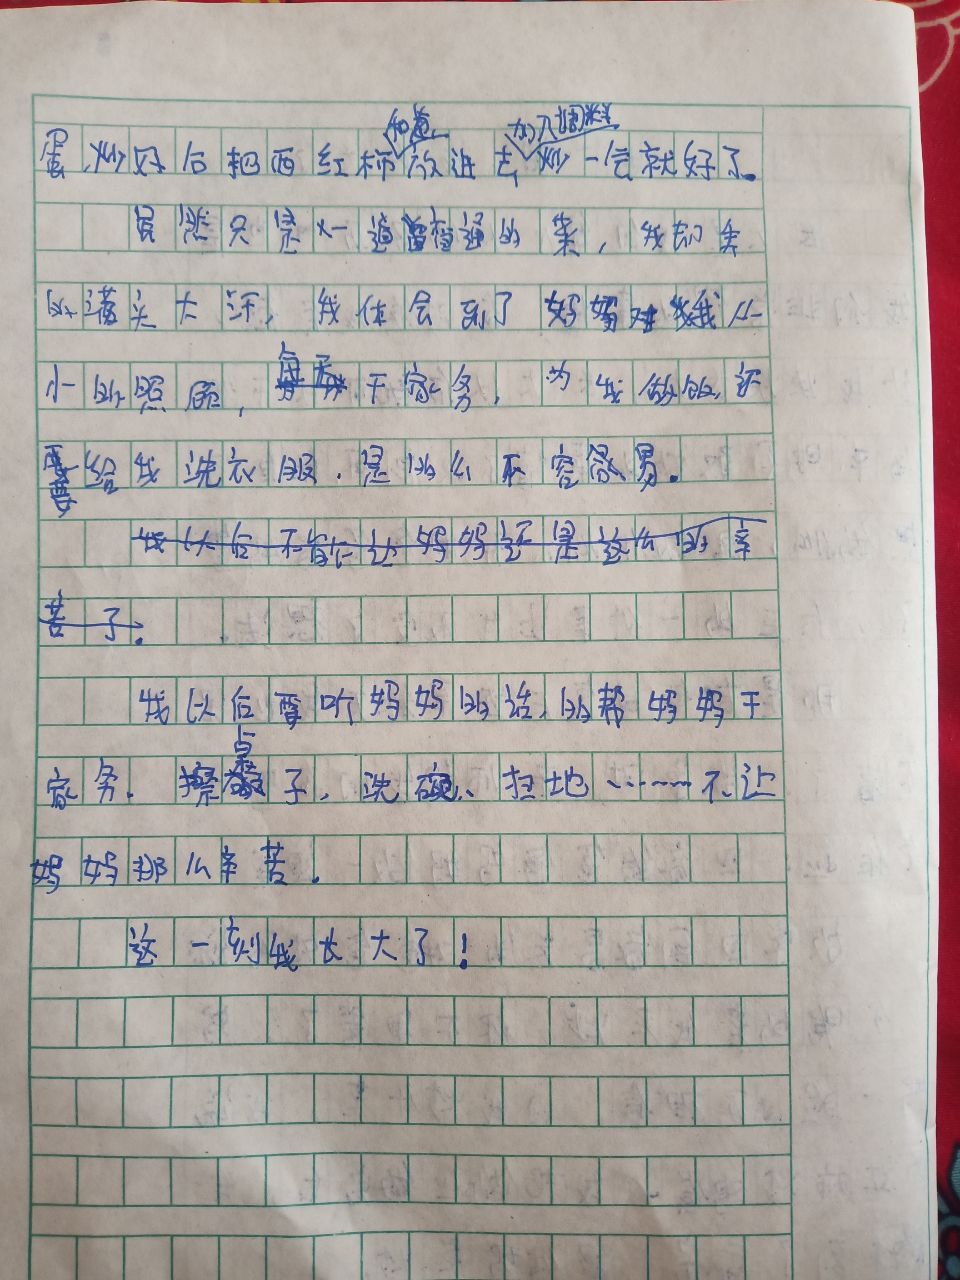 和葱 加入调料
蛋,炒好后把西红柿放进去,炒一会就好了。
虽然只是炒一道普通的菜,我却累
的满头大汗,我体会到了妈妈对我从
小的照顾,每天干家务,为我做饭,还
要给我洗衣服.是的么不容易。
我以后不能让妈妈还是这么的辛
苦了.
我以后要听妈妈的话,的帮妈妈干
家务.擦桌子,洗碗、扫地……不让
妈妈那么辛苦.
这一刻我长大了!